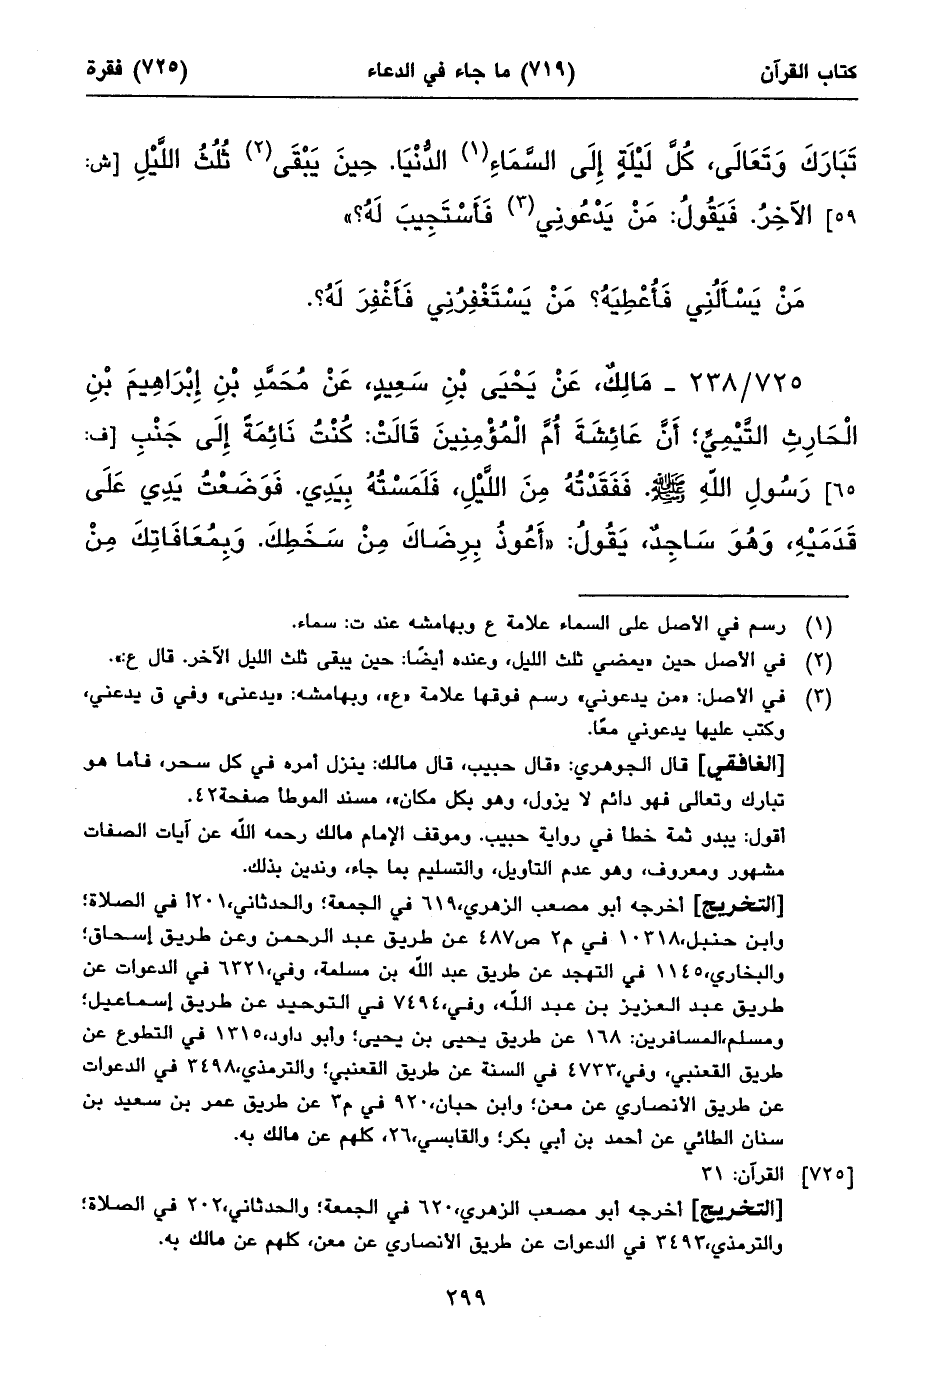 كتاب القرآن (٧١٩) ما جاء في الدعاء (٧٢٥) فقرة
تَبَارَكَ وَتَعَالَى، كُلَّ لَيْلَةٍ إِلَى السَّمَاءِ(١) الدُّنْيَا. حِينَ يَبْقَى(٢) ثُلُثُ اللَّيْلِ [ش:
٥٩] الآخِرُ. فَيَقُولُ: مَنْ يَدْعُونِي(٣) فَأَسْتَجِيبَ لَهُ؟»
مَنْ يَسْأَلُنِي فَأُعْطِيَهُ؟ مَنْ يَسْتَغْفِرُنِي فَأَغْفِرَ لَهُ؟.
٢٣٨/٧٢٥ - مَالِكٌ، عَنْ يَحْيَى بْنِ سَعِيدٍ، عَنْ مُحَمَّدِ بْنِ إِبْرَاهِيمَ بْنِ
الْحَارِثِ التَّيْمِيِّ؛ أَنَّ عَائِشَةَ أُمَّ الْمُؤْمِنِينَ قَالَتْ: كُنْتُ نَائِمَةً إِلَى جَنْبِ [ف:
٦٥] رَسُولِ اللّهِ ﷺ. فَفَقَدْتُهُ مِنَ اللَّيْلِ، فَلَمَسْتُهُ بِيَدِي. فَوَضَعْتُ يَدِي عَلَى
قَدَمَيْهِ، وَهُوَ سَاجِدٌ، يَقُولُ: «أَعُوذُ بِرِضَاكَ مِنْ سَخَطِكَ. وَبِمُعَافَاتِكَ مِنْ
(١) رسم في الأصل على السماء علامة ع وبهامشه عند ت: سماء.
(٢) في الأصل حين «يمضي ثلث الليل، وعنده أيضًا: حين يبقى ثلث الليل الآخر. قال ع:».
(٣) في الأصل: «من يدعوني» رسم فوقها علامة «ع»، وبهامشه: «يدعنى» وفي ق يدعني،
وكتب عليها يدعوني معًا.
[الغافقي] قال الجوهري: «قال حبيب، قال مالك: ينزل أمره في كل سحر، فأما هو
تبارك وتعالى فهو دائم لا يزول، وهو بكل مكان»، مسند الموطأ صفحة٤٢.
أقول: يبدو ثمة خطأ في رواية حبيب. وموقف الإمام مالك رحمه الله عن آيات الصفات
مشهور ومعروف، وهو عدم التأويل، والتسليم بما جاء، وندين بذلك.
[التخريج] أخرجه أبو مصعب الزهري،٦١٩ في الجمعة؛ والحدثاني،٢٠١أ في الصلاة؛
وابن حنبل،١٠٣١٨ في م٢ ص٤٨٧ عن طريق عبد الرحمن وعن طريق إسحاق؛
والبخاري،١١٤٥ في التهجد عن طريق عبد الله بن مسلمة، وفي،٦٣٢١ في الدعوات عن
طريق عبد العزيز بن عبد الله، وفي،٧٤٩٤ في التوحيد عن طريق إسماعيل؛
ومسلم،المسافرين: ١٦٨ عن طريق يحيى بن يحيى؛ وأبو داود،١٣١٥ في التطوع عن
طريق القعنبي، وفي،٤٧٣٣ في السنة عن طريق القعنبي؛ والترمذي،٣٤٩٨ في الدعوات
عن طريق الأنصاري عن معن؛ وابن حبان،٩٢٠ في م٣ عن طريق عمر بن سعيد بن
سنان الطائي عن أحمد بن أبي بكر؛ والقابسي،٢٦، كلهم عن مالك به.
[٧٢٥] القرآن: ٣١
[التخريج] أخرجه أبو مصعب الزهري،٦٢٠ في الجمعة؛ والحدثاني،٢٠٢ في الصلاة؛
والترمذي،٣٤٩٣ في الدعوات عن طريق الأنصاري عن معن، كلهم عن مالك به.
٢٩٩